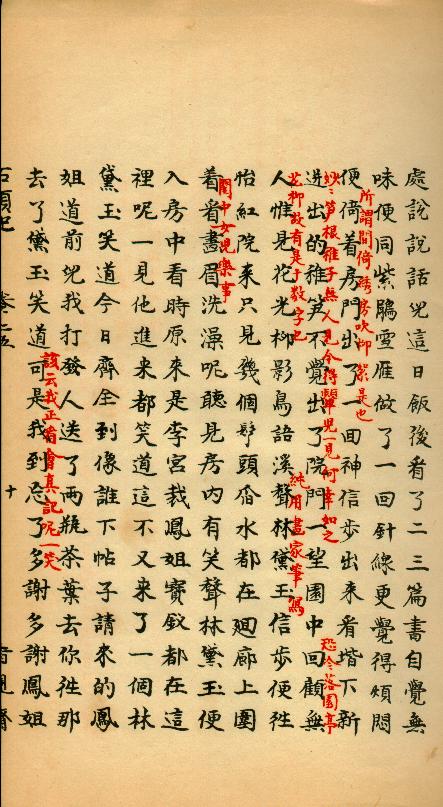 處說說話兒這日飯後看了二三篇書自覺無
味便同紫鵑雪雁做了一回針線更覺得煩悶
所謂閒倚綉房吹柳絮是也
便倚着房門出了一回神信步出來看堦下新
妙妙笋根稚子無人見今得顰兒一見何幸如之
迸出的稚笋不覺出了院門一望園中回顧無
恐冷落園亭
花柳故有是十數字也
人惟見花光柳影鳥語溪聲林黛玉信步便往
純用畫家筆寫
怡紅院來只見幾個頭舀水都在迴廊上圍
閨中女兒樂事
着看畫眉洗澡呢聽見房内有笑聲林黛玉便
入房中看時原來是李宮裁鳳姐寶釵都在這
裡呢一見他進來都笑道這不又来了一個林
黛玉笑道今日齊全到像誰下帖子請來的鳳
姐道前兒我打發人送了兩瓶茶葉去你往那
該云我正看會真記呢一笑
去了黛玉笑道可是我到忘了多謝多謝鳳姐
十